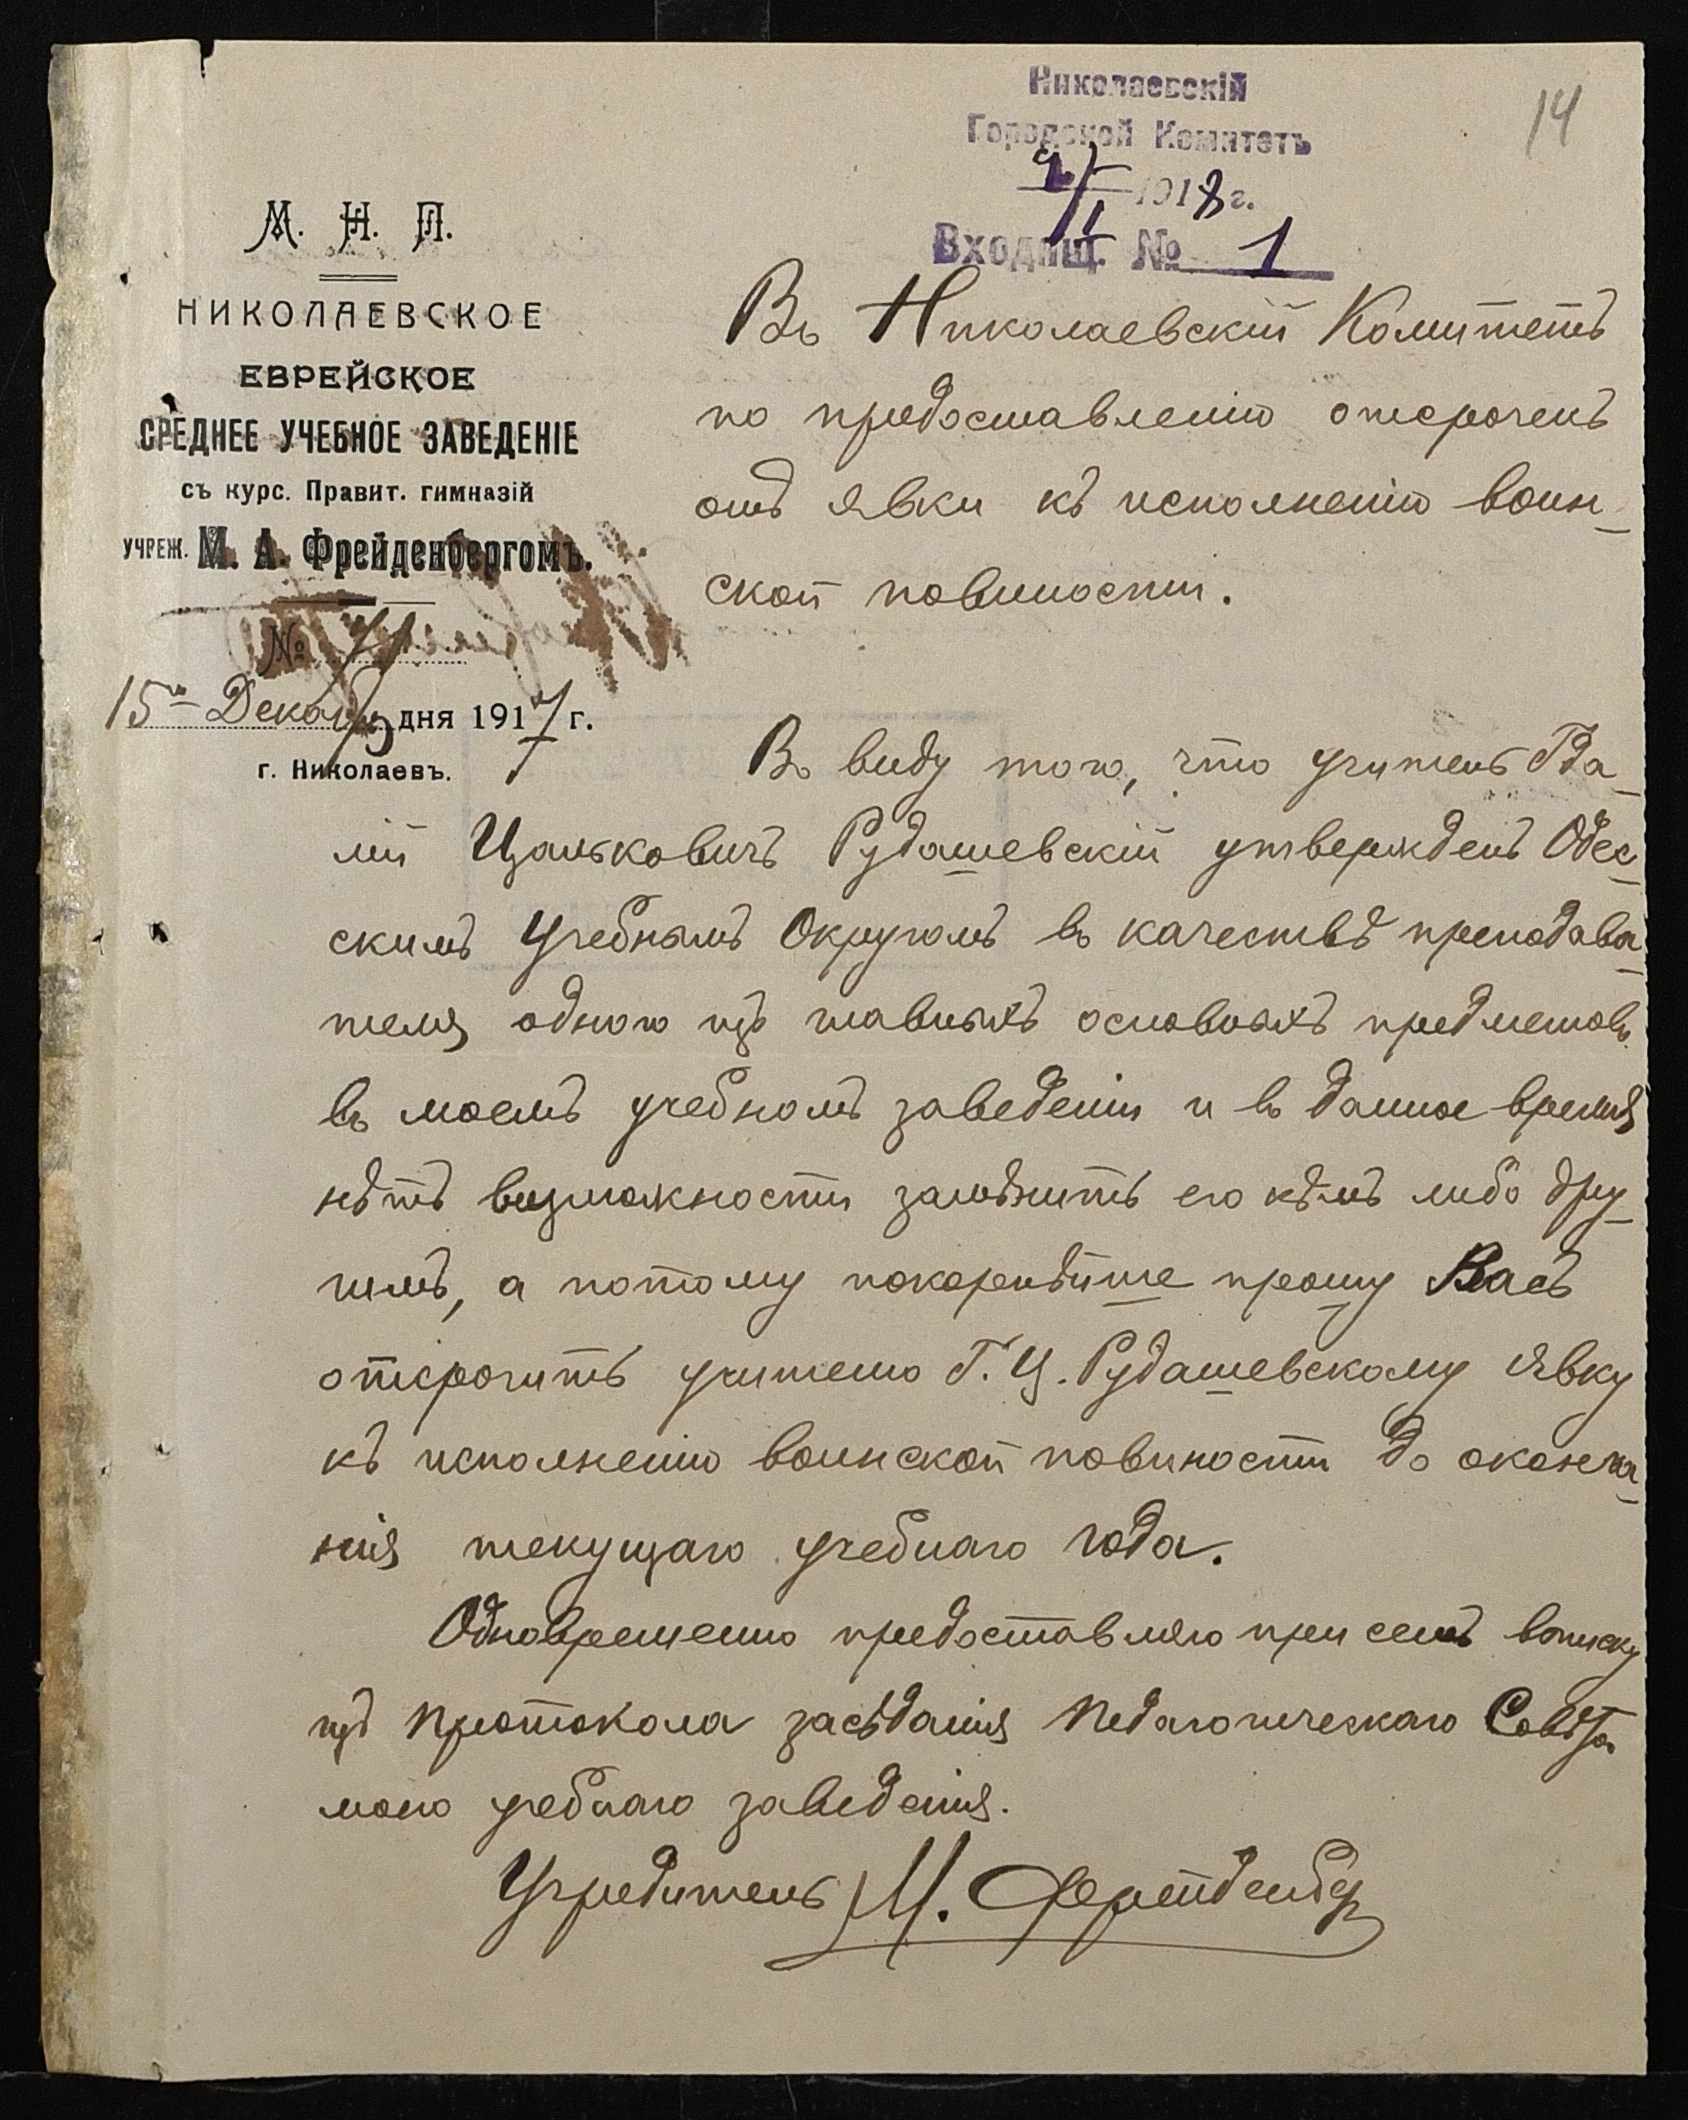 Николаевскій
Городской Комитетъ
14
2/I 1918 г.
Входящ. № 1
М. Н. П.
НИКОЛАЕВСКОЕ
ЕВРЕЙСКОЕ
СРЕДНЕЕ УЧЕБНОЕ ЗАВЕДЕНІЕ
съ курс. Правит. гимназій
УЧРЕЖ. М. А. Фрейденбергомъ.
№ 71
15го Декабря дня 1917 г.
г. Николаевъ.
Въ Николаевскій Комитетъ
по предоставленію отсрочекъ
отъ явки къ исполненію воин-
ской повиности.
Въ виду того, что учитель Гда-
лій Цальковичъ Рудашевскій утвержденъ Одес-
скимъ Учебнымъ Округомъ въ качествѣ преподава-
теля одного изъ главныхъ основныхъ предметовъ
въ моемъ учебномъ заведеніи и въ данное время
нѣтъ возможности замѣнить его кѣмъ либо дру-
гимъ, а потому покорнѣйше прошу Васъ
отсрочить учителю Г. Ц. Рудашевскому явку
къ исполненію воинской повиности до оконча-
нія текущаго учебнаго года.
Одновременно предоставляю при семъ выписку
изъ протокола засѣданія Педагогическаго Совѣта
моего учебнаго заведенія.
Учредитель М. Фрейденберг